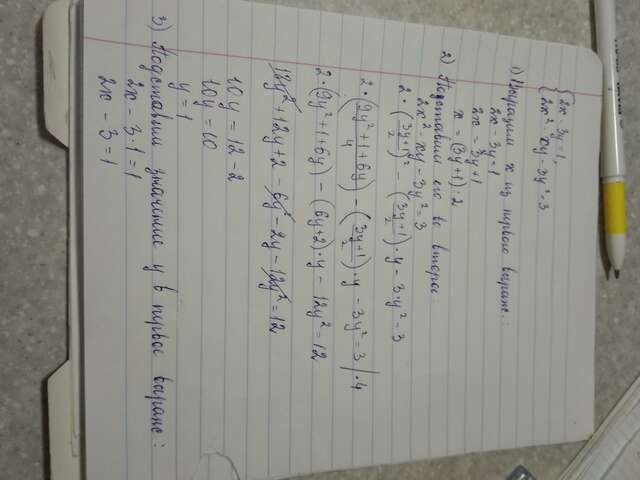 2x - 3y = 1,
2x² - xy - 3y² = 3
1) Выразим x из первого выраж.:
2x - 3y = 1
2x = 3y + 1
x = (3y + 1) : 2
2) Подставим его во второе:
2x² - xy - 3y² = 3
2 · (3y+1/2)² - (3y+1/2) · y - 3·y² = 3
2 · (9y² + 1 + 6y / 4) - (3y+1/2) · y - 3y² = 3 | · 4
2 · (9y² + 1 + 6y) - (6y + 2) · y - 12y² = 12
18y² + 12y + 2 - 6y² - 2y - 12y² = 12
10y = 12 - 2
10y = 10
y = 1
3) Подставим значение y в первое выраж.:
2x - 3 · 1 = 1
2x - 3 = 1